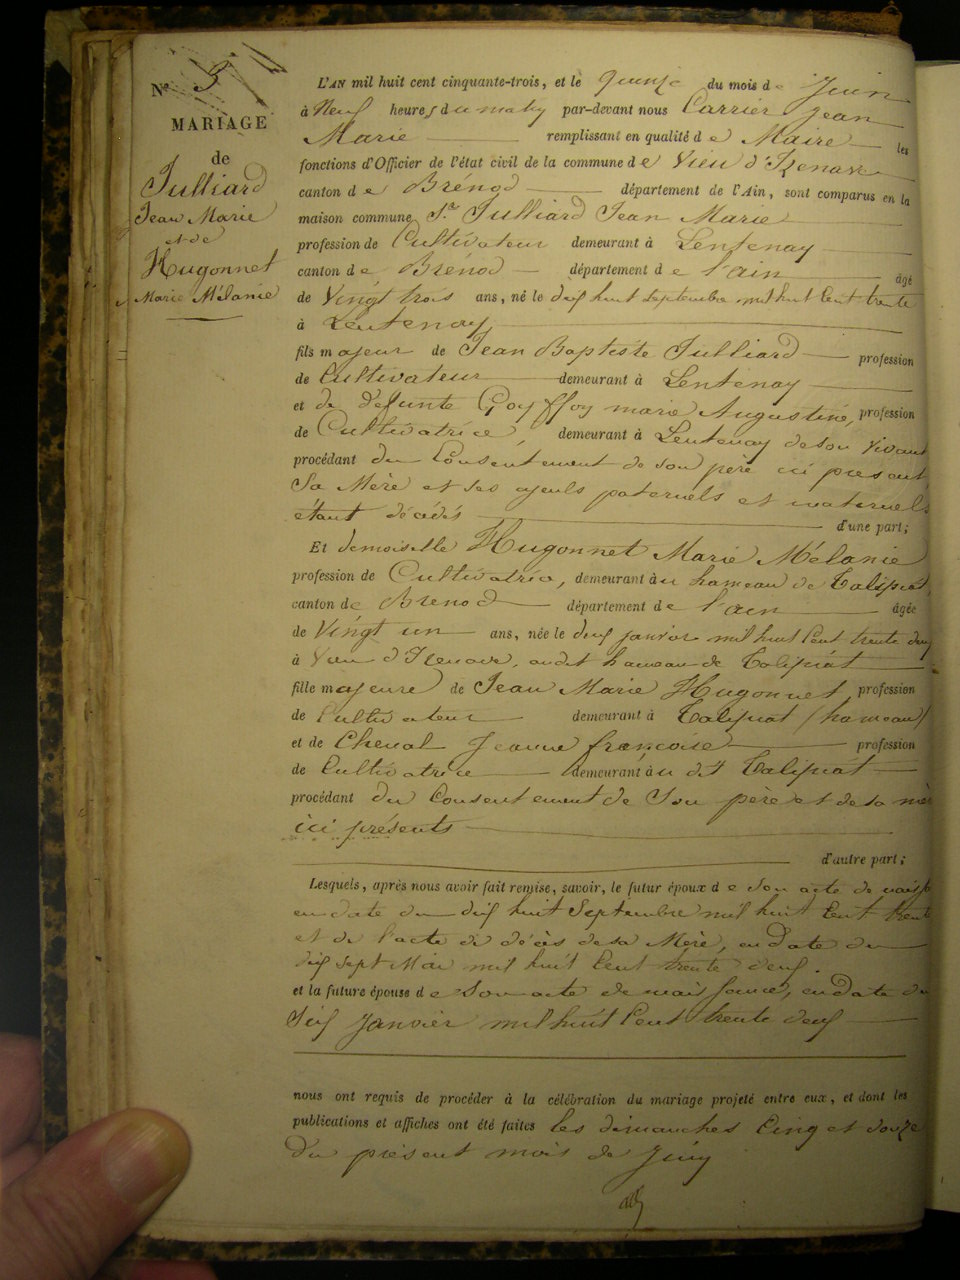 N° 5
MARIAGE
de
Julliard
Jean Marie
et de
Hugonnet
Marie Mélanie
L'AN mil huit cent cinquante-trois, et le quinze du mois de Juin
à Neuf heures du matin par-devant nous Carrier Jean
Marie remplissant en qualité de Maire les
fonctions d'Officier de l'état civil de la commune de Vieu d'Izenave
canton de Brénod département de l'Ain, sont comparus en la
maison commune Sr Julliard Jean Marie
profession de Cultivateur demeurant à Lentenay
canton de Brénod département de l'ain âgé
de Vingt trois ans, né le dix huit septembre mil huit Cent trente
à Lentenay
fils majeur de Jean Baptiste Julliard profession
de Cultivateur demeurant à Lentenay
et de défunte Goyffoy marie Augustine, profession
de Cultivatrice, demeurant à Lentenay de son vivant
procédant du Consentement de son père ici présent,
Sa Mère et ses ayeuls paternels et maternels
étant décédés d'une part;
Et demoiselle Hugonnet Marie Mélanie
profession de Cultivatrice, demeurant au hameau de Talipiat,
canton de Brenod département de l'ain âgée
de Vingt un ans, née le janvier mil huit Cent trente deux
à Vieu d'Izenave, audit hameau de Talipiat
fille majeure de Jean Marie Hugonnet profession
de Cultivateur demeurant à Talipiat (hameau)
et de Cheval Jeanne françoise profession
de Cultivatrice demeurant au dit Talipiat
procédant du Consentement de Son père et de sa mère
ici présents
d'autre part;
Lesquels, après nous avoir fait remise, savoir, le futur époux de son acte de
en date du dix huit Septembre mil huit Cent trente
et de l'acte de décès de sa Mère, en date du
dix sept Mai mil huit Cent trente deux.
et la future épouse de Son acte de naissance, en date du
Janvier mil huit Cent trente deux
nous ont requis de procéder à la célébration du mariage projeté entre eux, et dont les
publications et affiches ont été faites les dimanches Cinq et douze
du présent mois de Juin